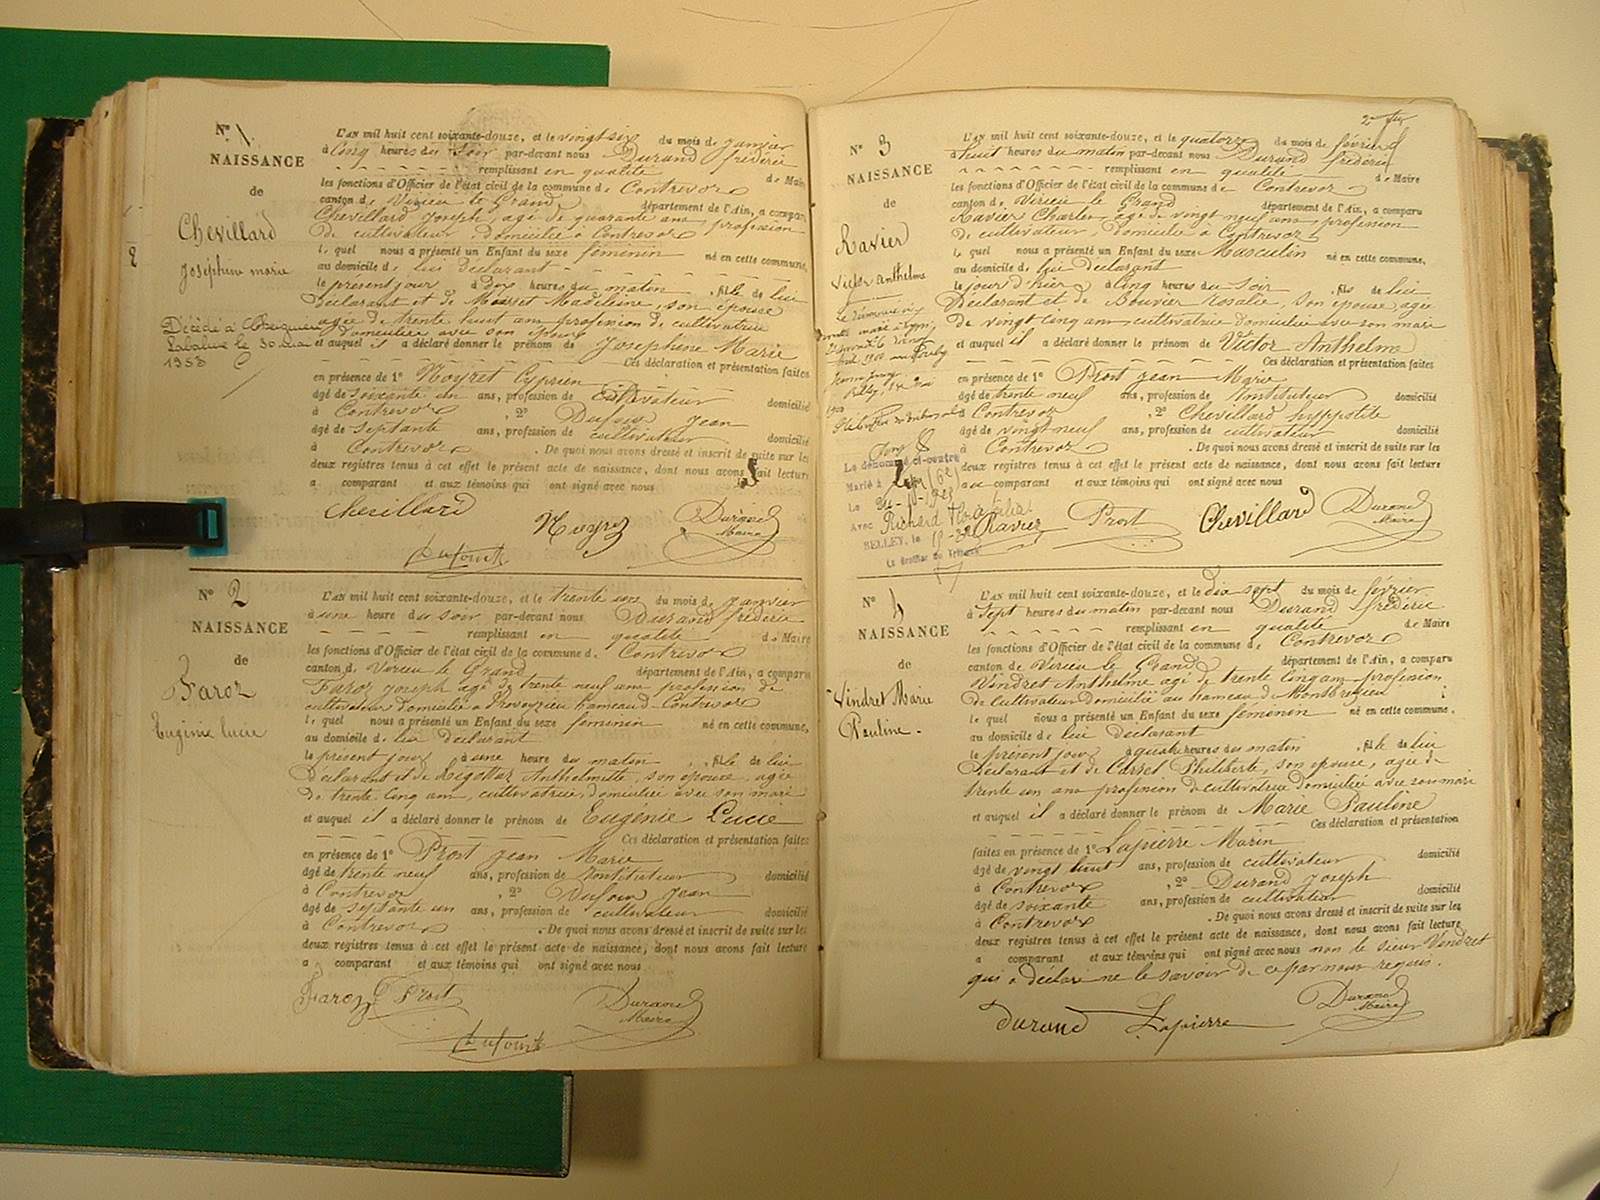 N° 1.
NAISSANCE
de
Chevillard
Joséphine marie
Décédé à
le 30 mai
1953
L'AN mil huit cent soixante-douze, et le vingt six du mois de janvier
à cinq heures du soir par-devant nous Durand frédéric
remplissant en qualité de Maire
les fonctions d'Officier de l'état civil de la commune de Contrevoz
canton de Virieu le Grand département de l'Ain, a comparu
Chevillard Joseph, agé de quarante ans profession
de cultivateur, domicilié à Contrevoz
lequel nous a présenté un Enfant du sexe féminin né en cette commune,
au domicile de lui déclarant
le présent jour à dix heures du matin, fille de lui
Déclarant et de Madeleine, son épouse
agée de trente huit ans profession de cultivatrice
domiciliée avec son époux
et auquel il a déclaré donner le prénom de Joséphine Marie
Ces déclaration et présentation faites
en présence de 1° Noyret Cyprien
âgé de soixante un ans, profession de cultivateur domicilié
à Contrevoz, 2° Dufour Jean
âgé de septante ans, profession de cultivateur domicilié
à Contrevoz. De quoi nous avons dressé et inscrit de suite sur les
deux registres tenus à cet effet le présent acte de naissance, dont nous avons fait lecture
a comparant et aux témoins qui ont signé avec nous
Chevillard Noyret Durand
Maire
Dufour
N° 2
NAISSANCE
de
Faroz
Eugénie lucie
L'AN mil huit cent soixante-douze, et le trente un du mois de janvier
à une heure du soir par-devant nous Durand frédéric
remplissant en qualité de Maire
les fonctions d'Officier de l'état civil de la commune de Contrevoz
canton de Virieu le Grand département de l'Ain, a comparu
Faroz Joseph agé de trente neuf ans profession de
cultivateur domicilié à Preveyzieu hameau de Contrevoz
lequel nous a présenté un Enfant du sexe féminin né en cette commune,
au domicile de lui déclarant
le présent jour à une heure du matin, fille de lui
Déclarant et de Rigottaz Anthelmette, son épouse, agée
de trente cinq ans, cultivatrice, domiciliée avec son mari
et auquel il a déclaré donner le prénom de Eugénie Lucie
Ces déclaration et présentation faites
en présence de 1° Prost jean Marie
âgé de trente neuf ans, profession de Instituteur domicilié
à Contrevoz, 2° Dufour Jean
âgé de septante un ans, profession de cultivateur domicilié
à Contrevoz. De quoi nous avons dressé et inscrit de suite sur les
deux registres tenus à cet effet le présent acte de naissance, dont nous avons fait lecture
a comparant et aux témoins qui ont signé avec nous
Faroz Prost Durand
Maire
Dufour
N° 3
NAISSANCE
de
Ravier
Victor Anthelme
Le dénommé ci-contre
Marié à
Le 24-10-1923
Avec Richard
BELLEY, le
Le Greffier du Tribunal
L'AN mil huit cent soixante-douze, et le quatorze du mois de février
à huit heures du matin par-devant nous Durand frédéric
remplissant en qualité de Maire
les fonctions d'Officier de l'état civil de la commune de Contrevoz
canton de Virieu le Grand département de l'Ain, a comparu
Ravier Charles, agé de vingt neuf ans profession
de cultivateur, domicilié à Contrevoz
lequel nous a présenté un Enfant du sexe Masculin né en cette commune,
au domicile de lui déclarant
le jour d'hier à cinq heures du soir, fils de lui
Déclarant et de Bouvier Rosalie, son épouse, agée
de vingt cinq ans, cultivatrice domiciliée avec son mari
et auquel il a déclaré donner le prénom de Victor Anthelme
Ces déclaration et présentation faites
en présence de 1° Prost jean Marie
âgé de trente neuf ans, profession de Instituteur domicilié
à Contrevoz, 2° Chevillard hyppolite
âgé de vingt neuf ans, profession de cultivateur domicilié
à Contrevoz. De quoi nous avons dressé et inscrit de suite sur les
deux registres tenus à cet effet le présent acte de naissance, dont nous avons fait lecture
au comparant et aux témoins qui ont signé avec nous
Ravier Prost Chevillard Durand
Maire
N° 4
NAISSANCE
de
Vindret Marie
Pauline.
L'AN mil huit cent soixante-douze, et le dix sept du mois de février
à sept heures du matin par-devant nous Durand frédéric
remplissant en qualité de Maire
les fonctions d'Officier de l'état civil de la commune de Contrevoz
canton de Virieu le Grand département de l'Ain, a comparu
Vindret Anthelme agé de trente cinq ans profession
de cultivateur domicilié au hameau de Montbreyzieu
lequel nous a présenté un Enfant du sexe féminin né en cette commune,
au domicile de lui déclarant
le présent jour à quatre heures du matin, fille de lui
Déclarant et de Carret Philiberte, son épouse, agée de
trente un ans profession de cultivatrice domiciliée avec son mari
et auquel il a déclaré donner le prénom de Marie Pauline
Ces déclaration et présentation
faites en présence de 1° Lapierre Marin
âgé de vingt huit ans, profession de cultivateur domicilié
à Contrevoz, 2° Durand Joseph
âgé de soixante ans, profession de cultivateur domicilié
à Contrevoz. De quoi nous avons dressé et inscrit de suite sur les
deux registres tenus à cet effet le présent acte de naissance, dont nous avons fait lecture
a comparant et aux témoins qui ont signé avec nous non le sieur Vindret
qui a déclaré ne le savoir de ce par nous requis.
Durand Lapierre Durand
Maire